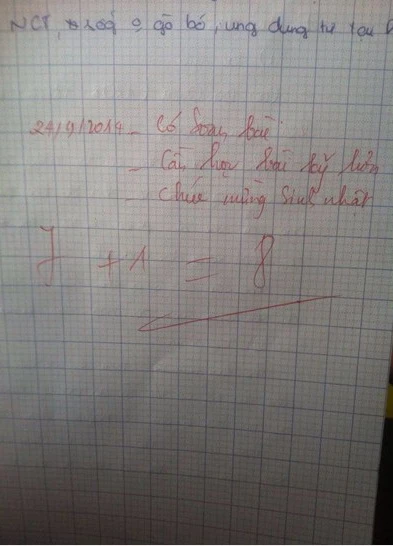 NCT, số 9 gò bó, ung dung tự tại
24/9/2014 - Có soạn bài
- Cần học bài kỹ hơn
- Chúc mừng sinh nhật
7 + 1 = 8